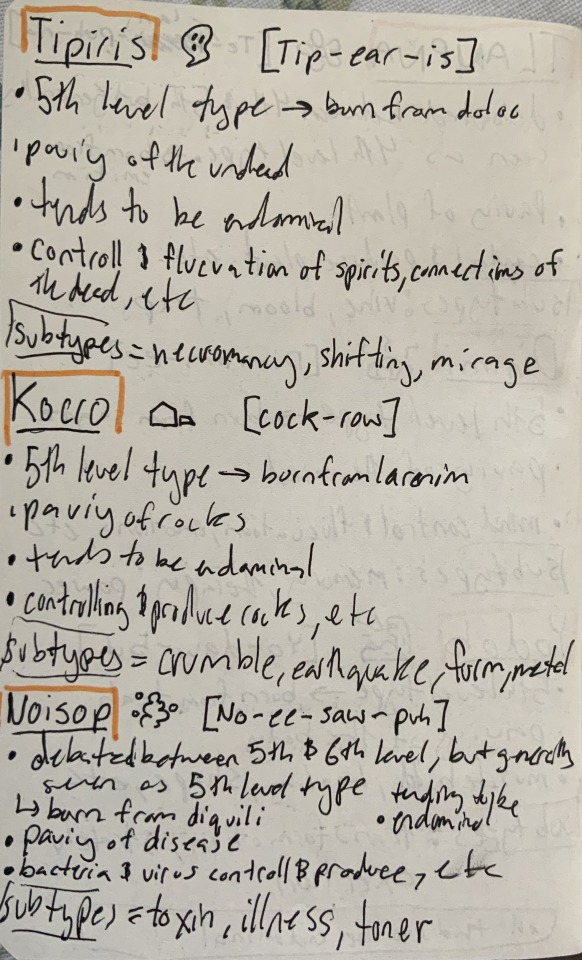 Tipiris [Tip-ear-is]
• 5th level type → born from doloc
• paviy of the undead
• tends to be endaminal
• controll & flucuation of spirits, connections of
the dead, etc
subtypes = necromancy, shifting, mirage
Kocro [cock-row]
• 5th level type → born from larenim
• paviy of rocks
• tends to be endaminal
• controlling & produce rocks, etc
subtypes = crumble, earthquake, form, metal
Noisop [No-ee-saw-puh]
• debated between 5th & 6th level, but generally
seen as 5th level type
↳ born from diquili
• tending to be
endaminal
• paviy of disease
• bacteria & virus controll & produce, etc
subtypes = toxin, illness, toner